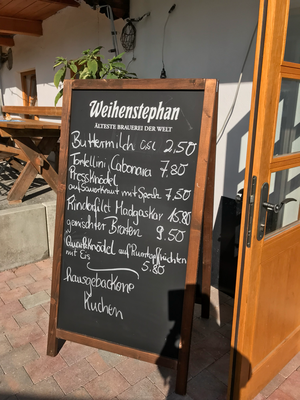 Weihenstephan
ÄLTESTE BRAUEREI DER WELT
Buttermilch Gl. 2,50
Tortellini Cabonara 7.80
Pressknödel
auf Sauerkraut mit Speck 7,50
Rinderfilet Madagaskar 16.80
gemischter Braten 9.50
Quarkknödel auf Rumtopffrüchten
mit Eis 5.80
hausgebackene
Kuchen